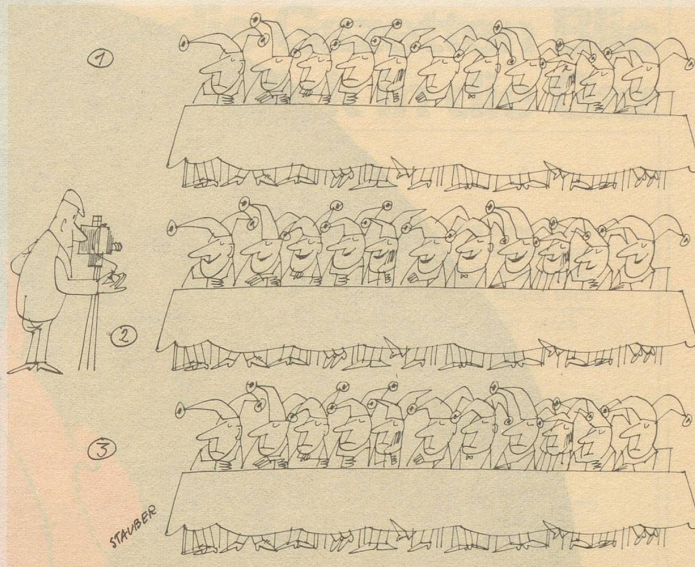 1
2
3
STAUBER